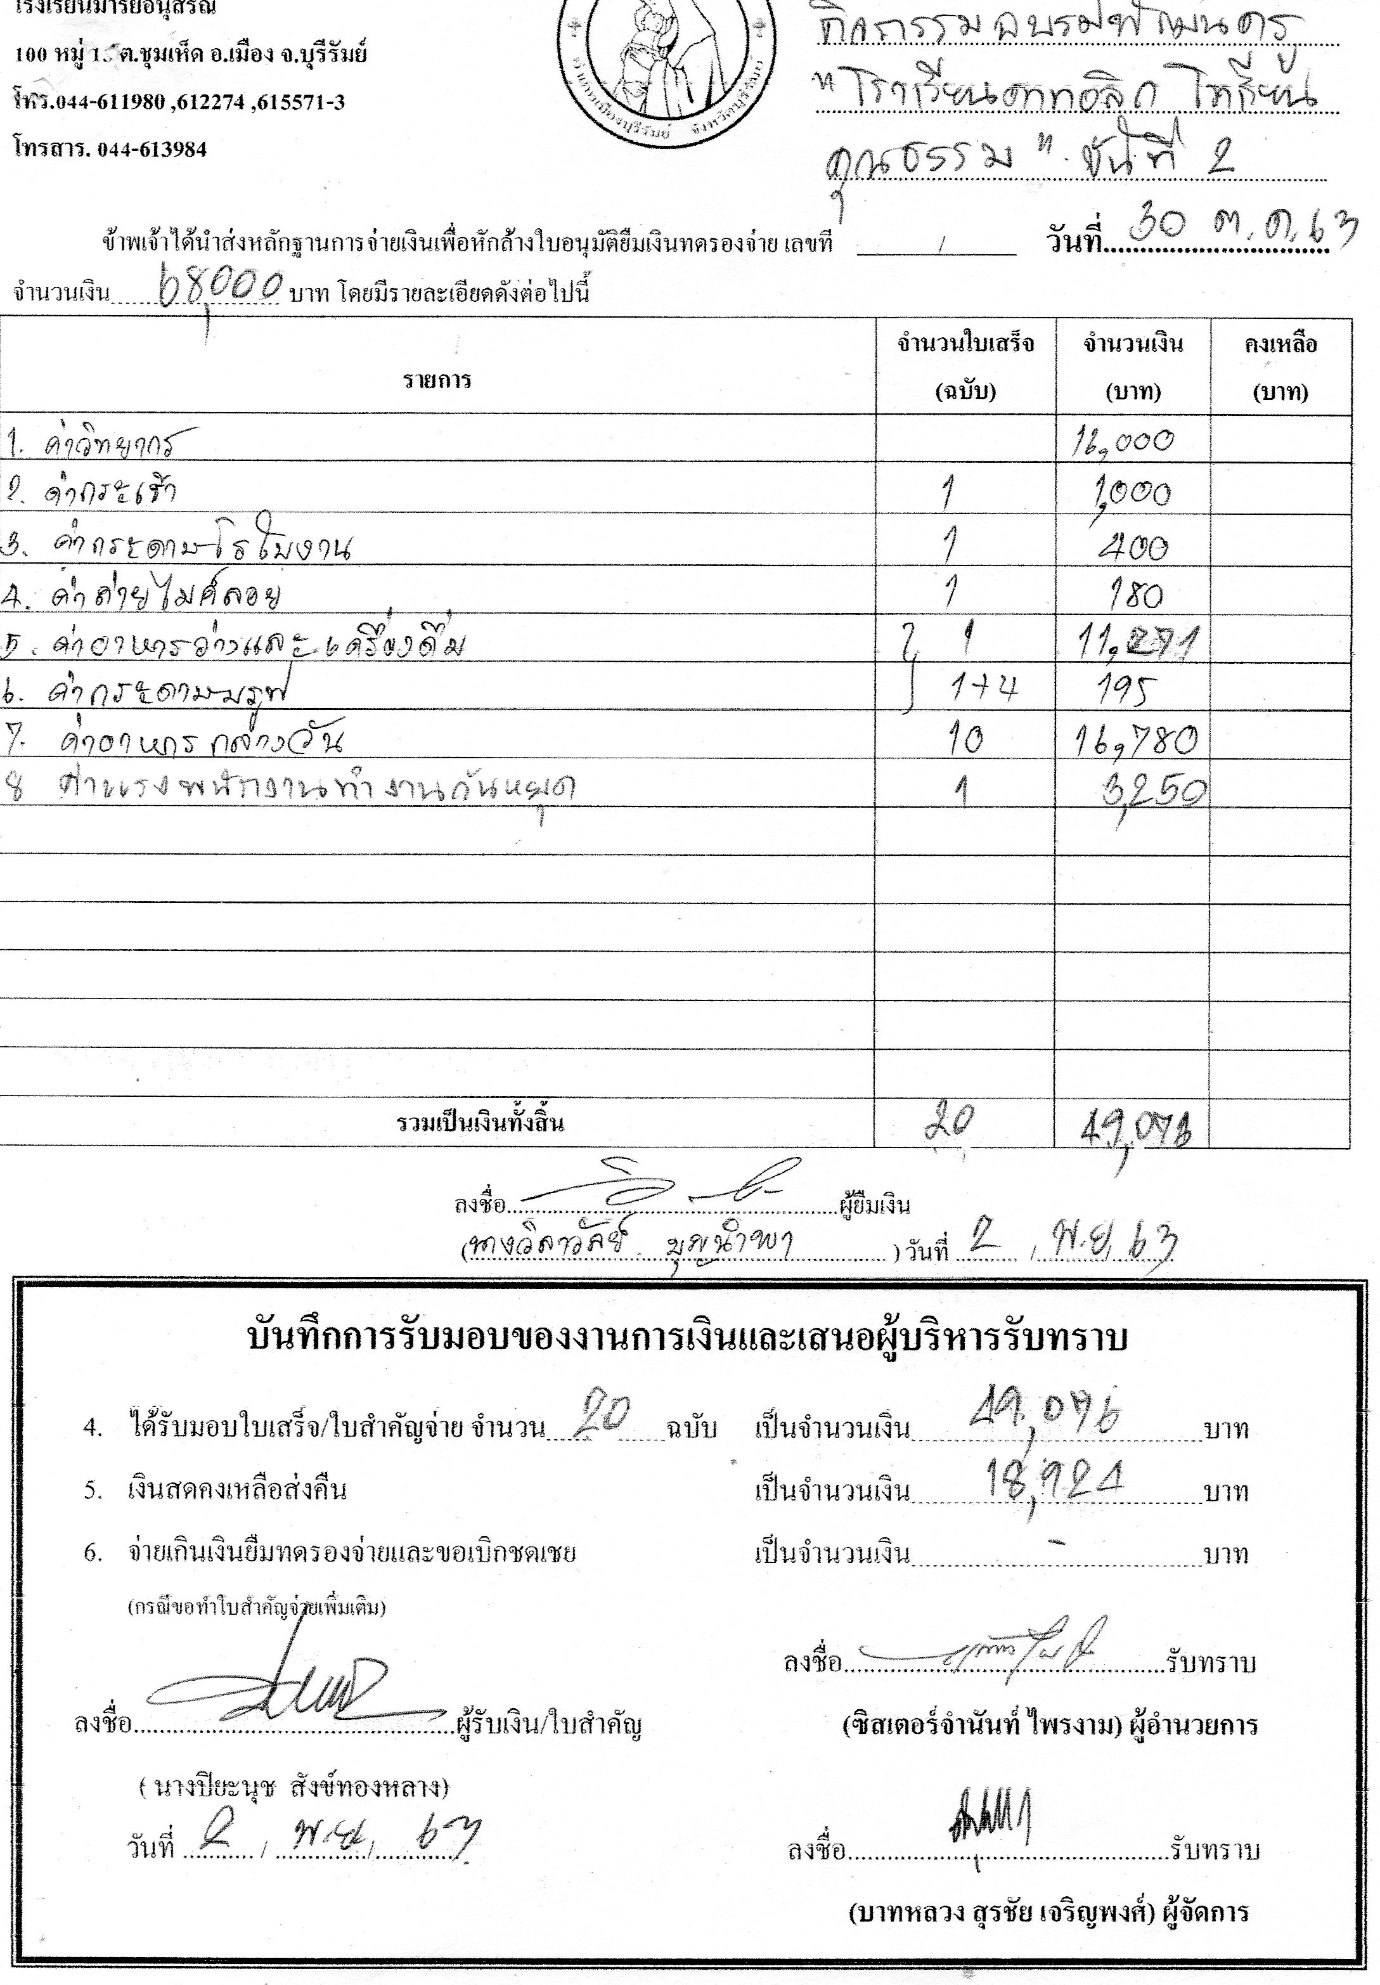 โรงเรียนมารีย์อนุสรณ์
100 หมู่ 15 ต.ชุมเห็ด อ.เมือง จ.บุรีรัมย์
โทร.044-611980 ,612274 ,615571-3
โทรสาร. 044-613984
กิจกรรมอบรมพัฒนาครู
"โรงเรียนคาทอลิก โรงเรียน
คุณธรรม" ขั้นที่ 2
ข้าพเจ้าได้นำส่งหลักฐานการจ่ายเงินเพื่อหักล้างใบอนุมัติยืมเงินทดรองจ่าย เลขที่ / วันที่ 30 ต.ค. 63
จำนวนเงิน 68,000 บาท โดยมีรายละเอียดดังต่อไปนี้
รายการ จำนวนใบเสร็จ (ฉบับ) จำนวนเงิน (บาท) คงเหลือ (บาท)
1. ค่าวิทยากร 16,000
2. ค่ากระเช้า 1 1,000
3. ค่ากระดาษโรเนียวงาน 1 400
4. ค่าถ่านไมค์ลอย 1 180
5. ค่าอาหารว่างและเครื่องดื่ม 1 11,271
6. ค่ากระดาษปรู๊ฟ 1+4 195
7. ค่าอาหารกลางวัน 10 16,780
8 ค่าแรงพนักงานทำงานวันหยุด 1 3,250
รวมเป็นเงินทั้งสิ้น 20 49,076
ลงชื่อ ผู้ยืมเงิน
(นางวิลาวัลย์ บุญนำพา) วันที่ 2 / พ.ย. / 63
บันทึกการรับมอบของงานการเงินและเสนอผู้บริหารรับทราบ
4. ได้รับมอบใบเสร็จ/ใบสำคัญจ่าย จำนวน 20 ฉบับ เป็นจำนวนเงิน 49,076 บาท
5. เงินสดคงเหลือส่งคืน เป็นจำนวนเงิน 18,924 บาท
6. จ่ายเกินเงินยืมทดรองจ่ายและขอเบิกชดเชย เป็นจำนวนเงิน - บาท
(กรณีขอทำใบสำคัญจ่ายเพิ่มเติม)
ลงชื่อ รับทราบ
ลงชื่อ ผู้รับเงิน/ใบสำคัญ
(ซิสเตอร์จำนันท์ ไพรงาม) ผู้อำนวยการ
( นางปิยะนุช สังข์ทองหลาง)
วันที่ 2 / พ.ย. / 63
ลงชื่อ รับทราบ
(บาทหลวง สุรชัย เจริญพงศ์) ผู้จัดการ